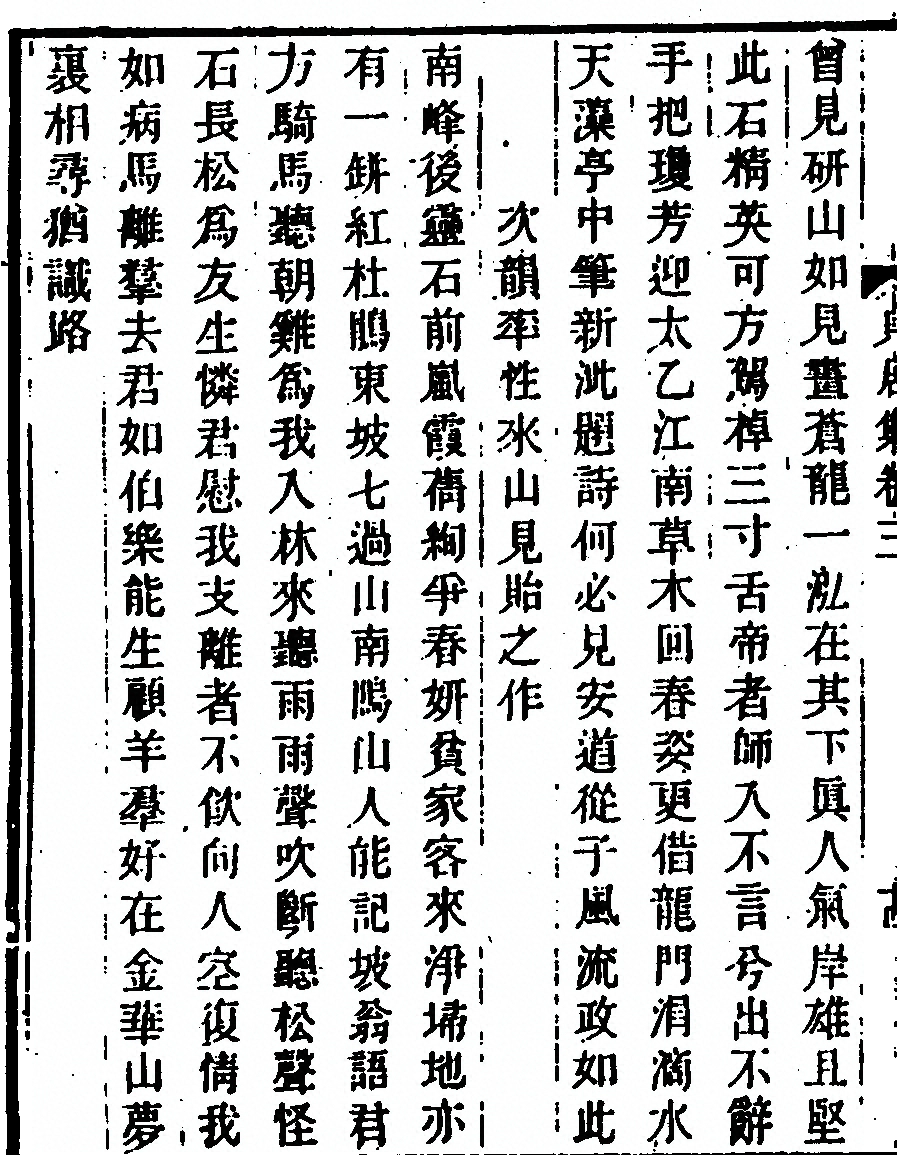 貞居集卷三
曾見研山如見畫蒼龍一泓在其下眞人氣岸雄且堅
此石精英可方駕掉三寸舌帝者師入不言兮出不辭
手把瓊芳迎太乙江南草木回春姿更借龍門涓滴水
天藻亭中筆新泚題詩何必見安道從子風流政如此
次韻率性水山見貽之作
南峰後靈石前嵐霞蒨絢爭春妍貧家客來淨埽地亦
有一缾紅杜鵑東坡七過山南鴈山人能記坡翁語君
方騎馬聽朝雞爲我入林來聽雨雨聲吹斷聽松聲怪
石長松爲友生憐君慰我支離者不飲向人空復情我
如病馬離羣去君如伯樂能生顧羊羣好在金華山夢
裏相尋猶識路